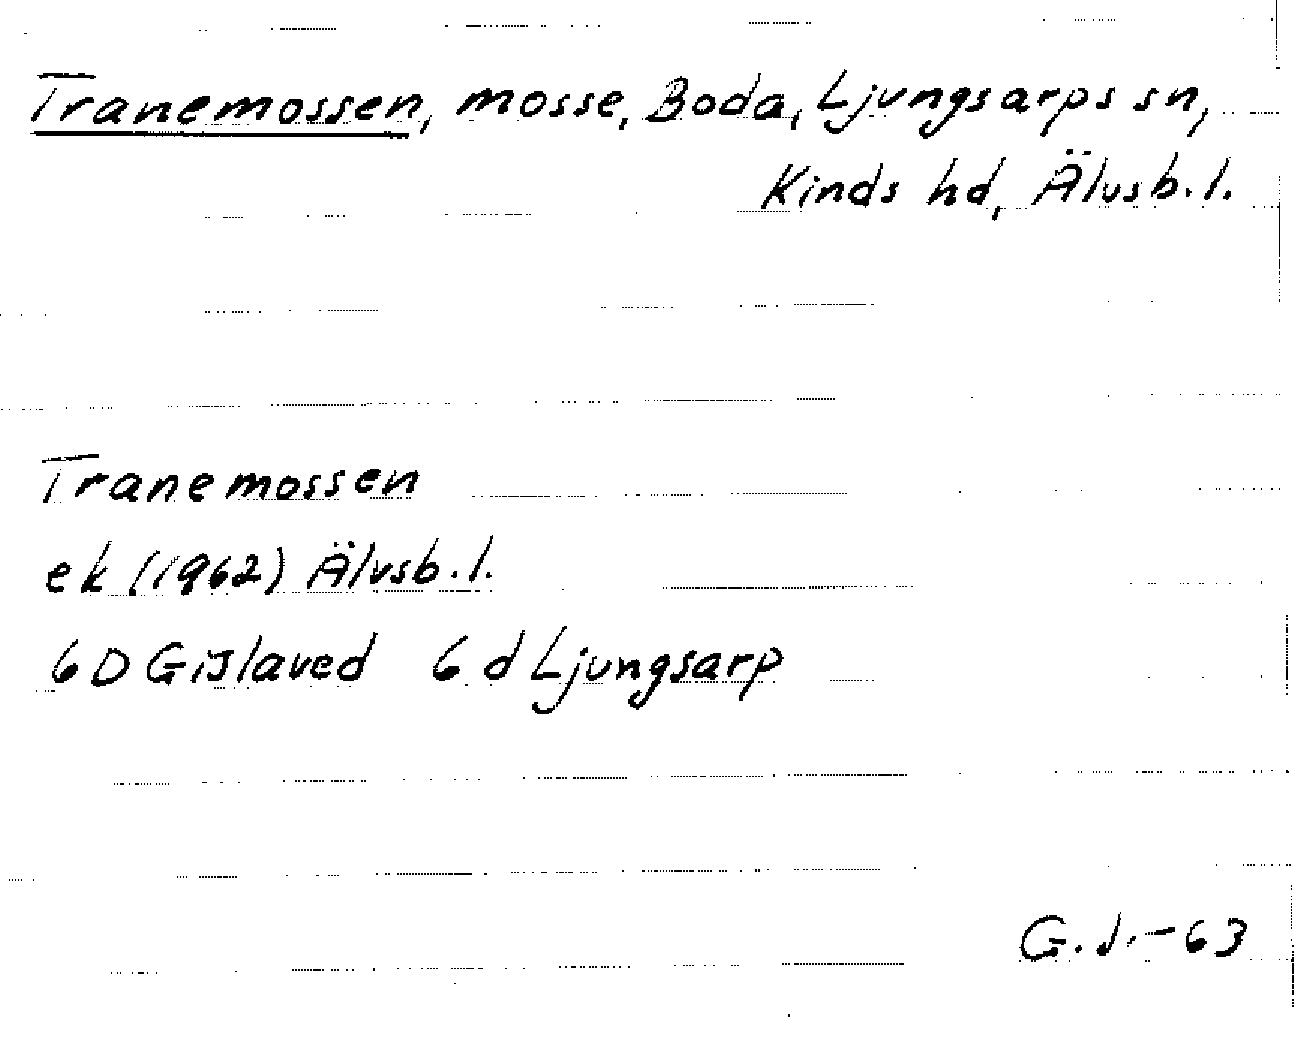 Tranemossen, mosse, Boda, Ljungsarps sn,
Kinds hd, Älvsb. l.
Tranemossen
ek (1962) Älvsb. l.
6 D Gislaved 6 d Ljungsarp
G. J. -63